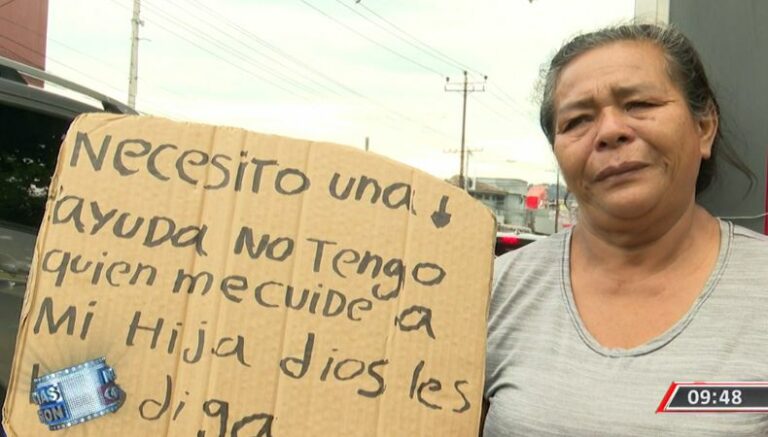 Necesito una
ayuda No Tengo
quien me cuide a
Mi Hija dios les
diga
09:48